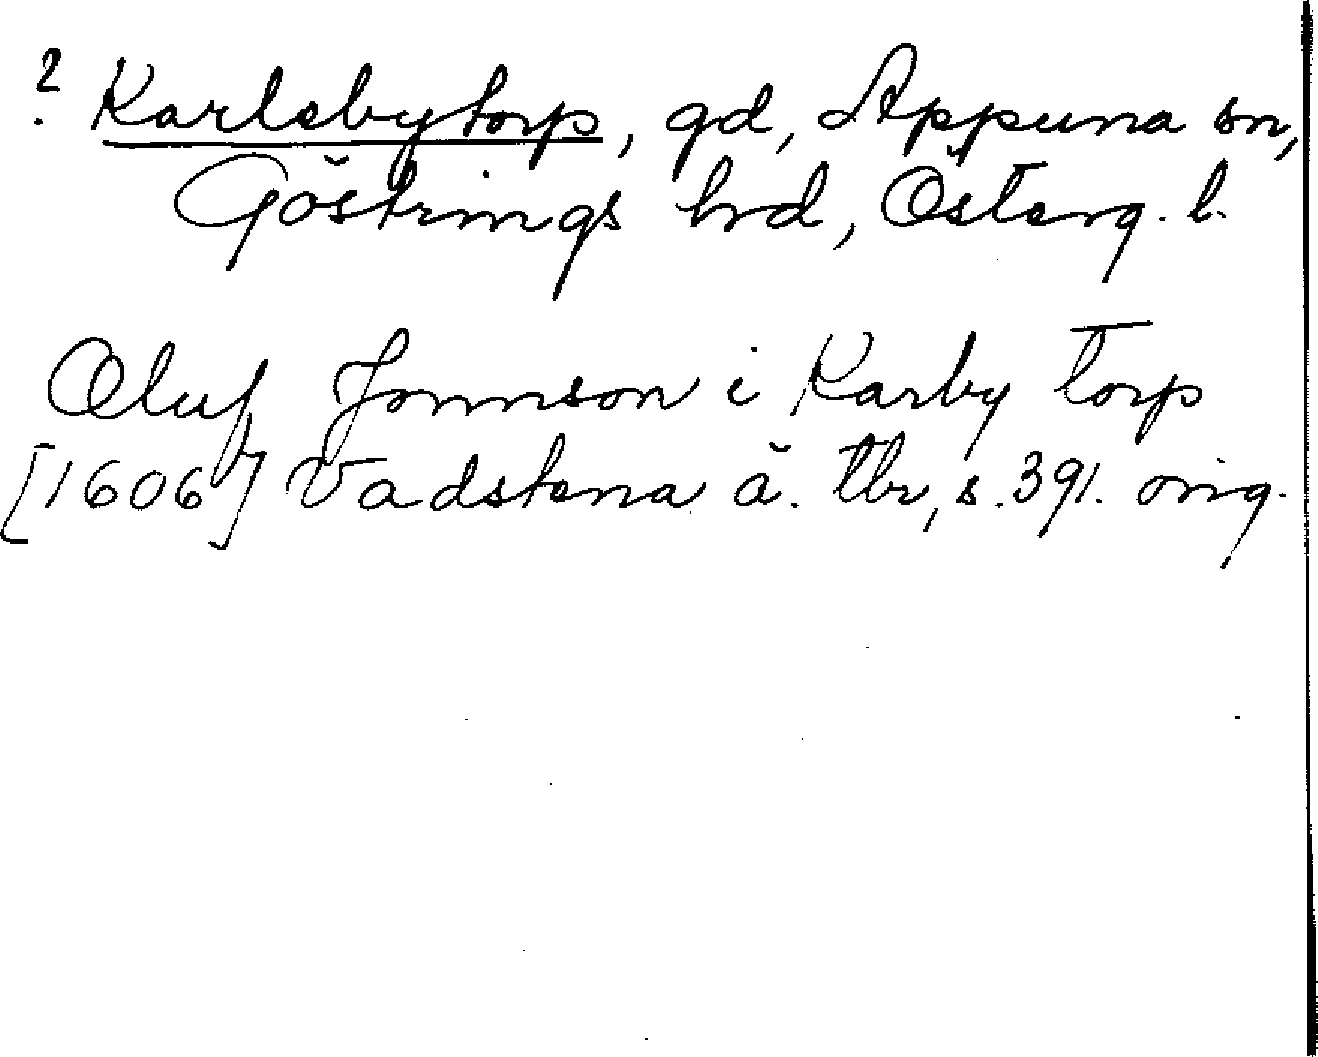 ? Karlebytorp, gd, Appuna sn,
Göstrings hrd, Österg. l.
Oluf Jonnson i Karby torp
[1606] Vadstena ä. tbr, s. 391. orig.